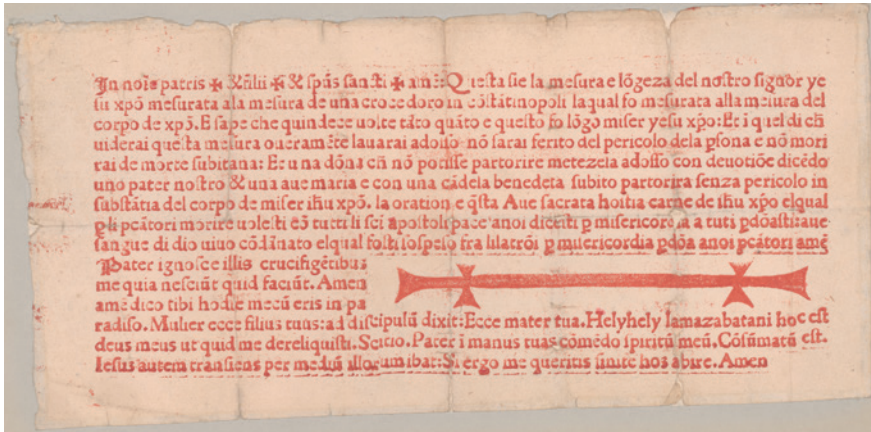 In noīe patris ✠ & filii ✠ & spūs sancti ✠ amē: Questa sie la mesura e lōgeza del nostro signor ye
su xpō mesurata ala mesura de una croce doro in cōstātinopoli la qual fo mesurata alla mesura del
corpo de xpō. E sape che quindece uolte tāto quāto e questo fo lōgo miser yesu xpo: Et i quel di ch̄
uiderai questa mesura oueramēte lauarai adosso nō sarai ferito del pericolo dela ꝑsona e nō mori
rai de morte subitana: Et una dōna ch̄ nō potesse partorire metezela adosso con deuotiōe dicēdo
uno pater nostro & una aue maria e con una cādela benedeta subito partorira senza pericolo in
substātia del corpo de miser ihu xpō. la oration e q̄sta Aue sacrata hostia carne de ihu xpo elqual
ꝑ li pcātori morire uolesti cō tutti li sci apostoli pace anoi dicesti ꝑ misericordia a tuti ꝑdōasti: aue
sangue di dio uiuo cōdānato elqual fosti sospeso fra li latrōi ꝑ misericordia ꝑdōa anoi pcātori amē
Pater ignosce illis crucifigētibus
me quia nesciūt quid faciūt. Amen
amē dico tibi hodie mecū eris in pa
radiso. Mulier ecce filius tuus: ad discipulū dixit: Ecce mater tua. Helyhely lamazabatani hoc est
deus meus ut quid me dereliquisti. Scitio. Pater i manus tuas cōmēdo spiritū meū. Cōsūmatū est.
Iesus autem transiens per mediū illorum ibat: Si ergo me queritis sinite hos abire. Amen